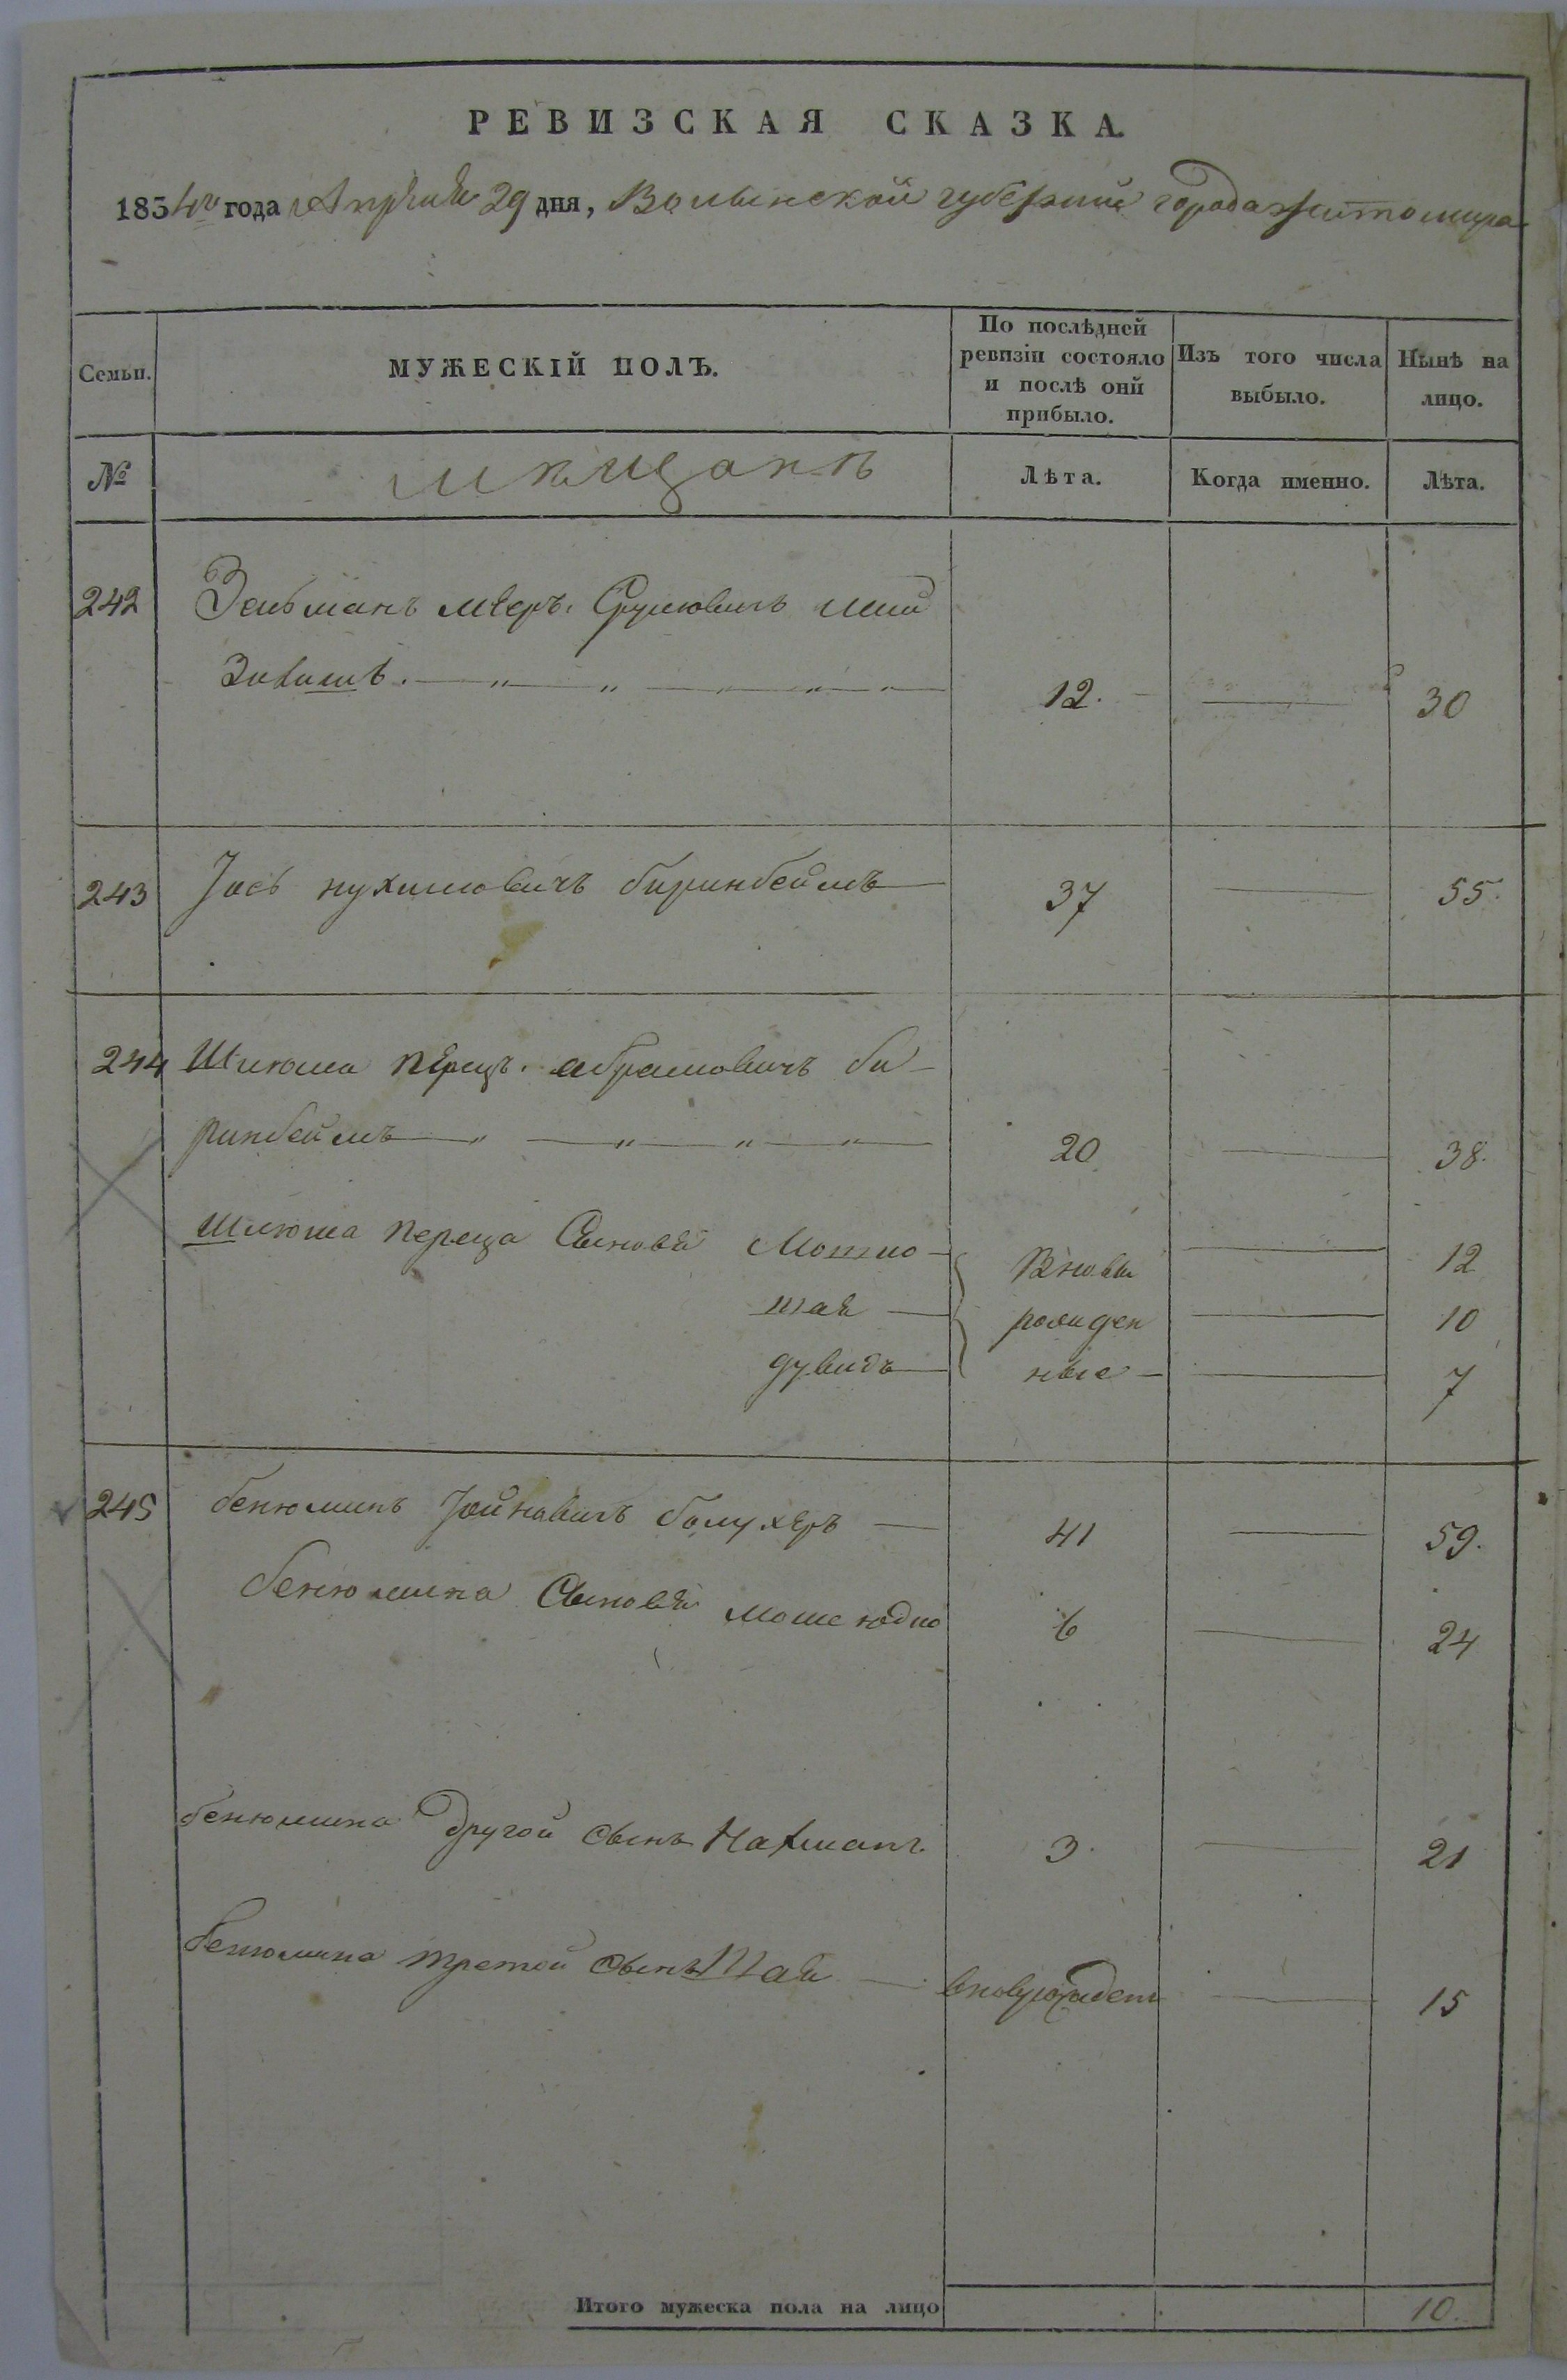 РЕВИЗСКАЯ СКАЗКА.
1834го года Апреля 29 дня, Волынской губернии города Житомира
Семьи.
МУЖЕСКІЙ ПОЛЪ.
По послѣдней ревизіи состояло и послѣ оной прибыло.
Изъ того числа выбыло.
Нынѣ на лицо.
№
мѣщанъ
Лѣта.
Когда именно.
Лѣта.
242 Зельманъ мееръ Сруловичъ
12. 30
243 Іось нухимовичъ биринбеймъ 37 55.
244 Шлюма перецъ абрамовичъ би-
ринбеймъ 20 38.
Шлюма переца Сыновья Мотио Вновь 12
шая рожден 10
дувидъ ные 7
245 бенюминъ Іойновичъ болухеръ 41 59.
бенюмина Сыновья моше юдко 6 24
бенюмина другой сынъ Нахманъ 3. 21
бенюмина третой сынъ Шая вновурожденъ 15
Итого мужеска пола на лицо 10.